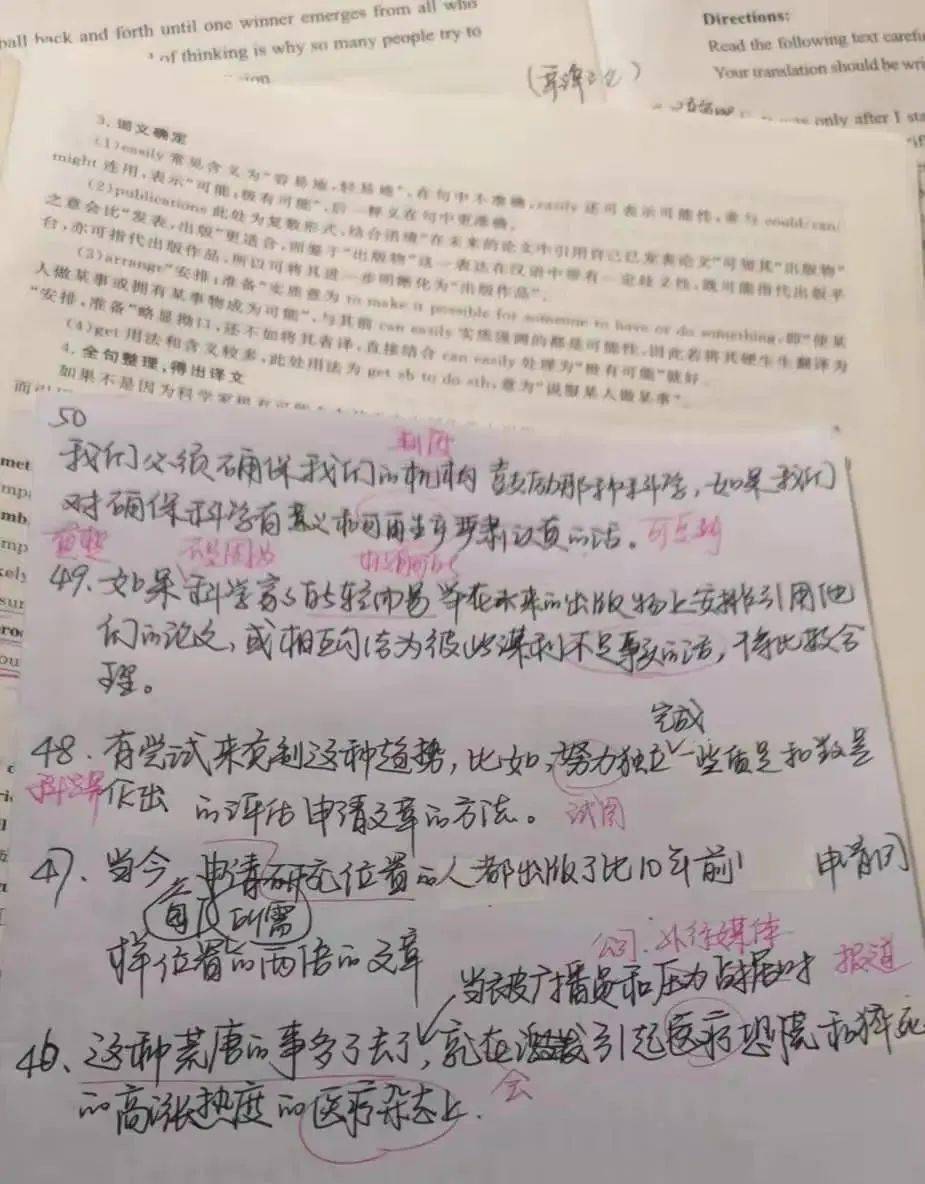 ball back and forth until one winner emerges from all who
of thinking is why so many people try to
Directions:
Read the following text carefu
Your translation should be wri
only after I sta
3. 词义确定
(1)easily 常见含义为“容易地,轻易地”,在句中不准确,easily 还可表示可能性,常与 could/can/
might 连用,表示“可能,极有可能”,后一种义在句中更准确。
(2)publications 此处为复数形式,结合语境“在未来的论文中引用自己已发表论文”可知其“出版物”
之意会比“发表,出版”更适合,而鉴于“出版物”这一表达在汉语中带有一定歧义性,既可能指代出版平
台,亦可指代出版作品,所以可将其进一步明晰化为“出版作品”。
(3)arrange“安排;准备”实质意为 to make it possible for someone to have or do something,即“使某
人做某事或拥有某事物成为可能”,与其前 can easily 实质强调的都是可能性,因此若将其硬生生翻译为
“安排,准备”略显拗口,还不如将其省译,直接结合 can easily 处理为“极有可能”就好。
(4)get 用法和含义较多,此处用法为 get sb to do sth,意为“说服某人做某事”。
4. 全句整理,得出译文
如果不是因为科学家极有可能
50
我们必须确保我们的机构鼓励那种科学,如果我们
对确保科学有意义和可再生产严肃认真的话。
不是因为
49. 如果科学家们能轻而易举在未来的出版物上安排引用他
们的论文,或相互勾结为彼此谋利不是事实的话,将比较合
理。
完成
48. 有尝试来克制这种趋势,比如,努力独立一些质量和数量
化出 的评估申请文章的方法。 试图
47. 当今,申请研究位置的人都出版了比10年前 申请同
所需
样位置的两倍的文章
公司 外行媒体
当被广播员和压力占据时 报道
46、这种荒唐的事多了去了,就在激发引起医疗恐慌和猝死
会
的高涨热度的医疗杂志上.